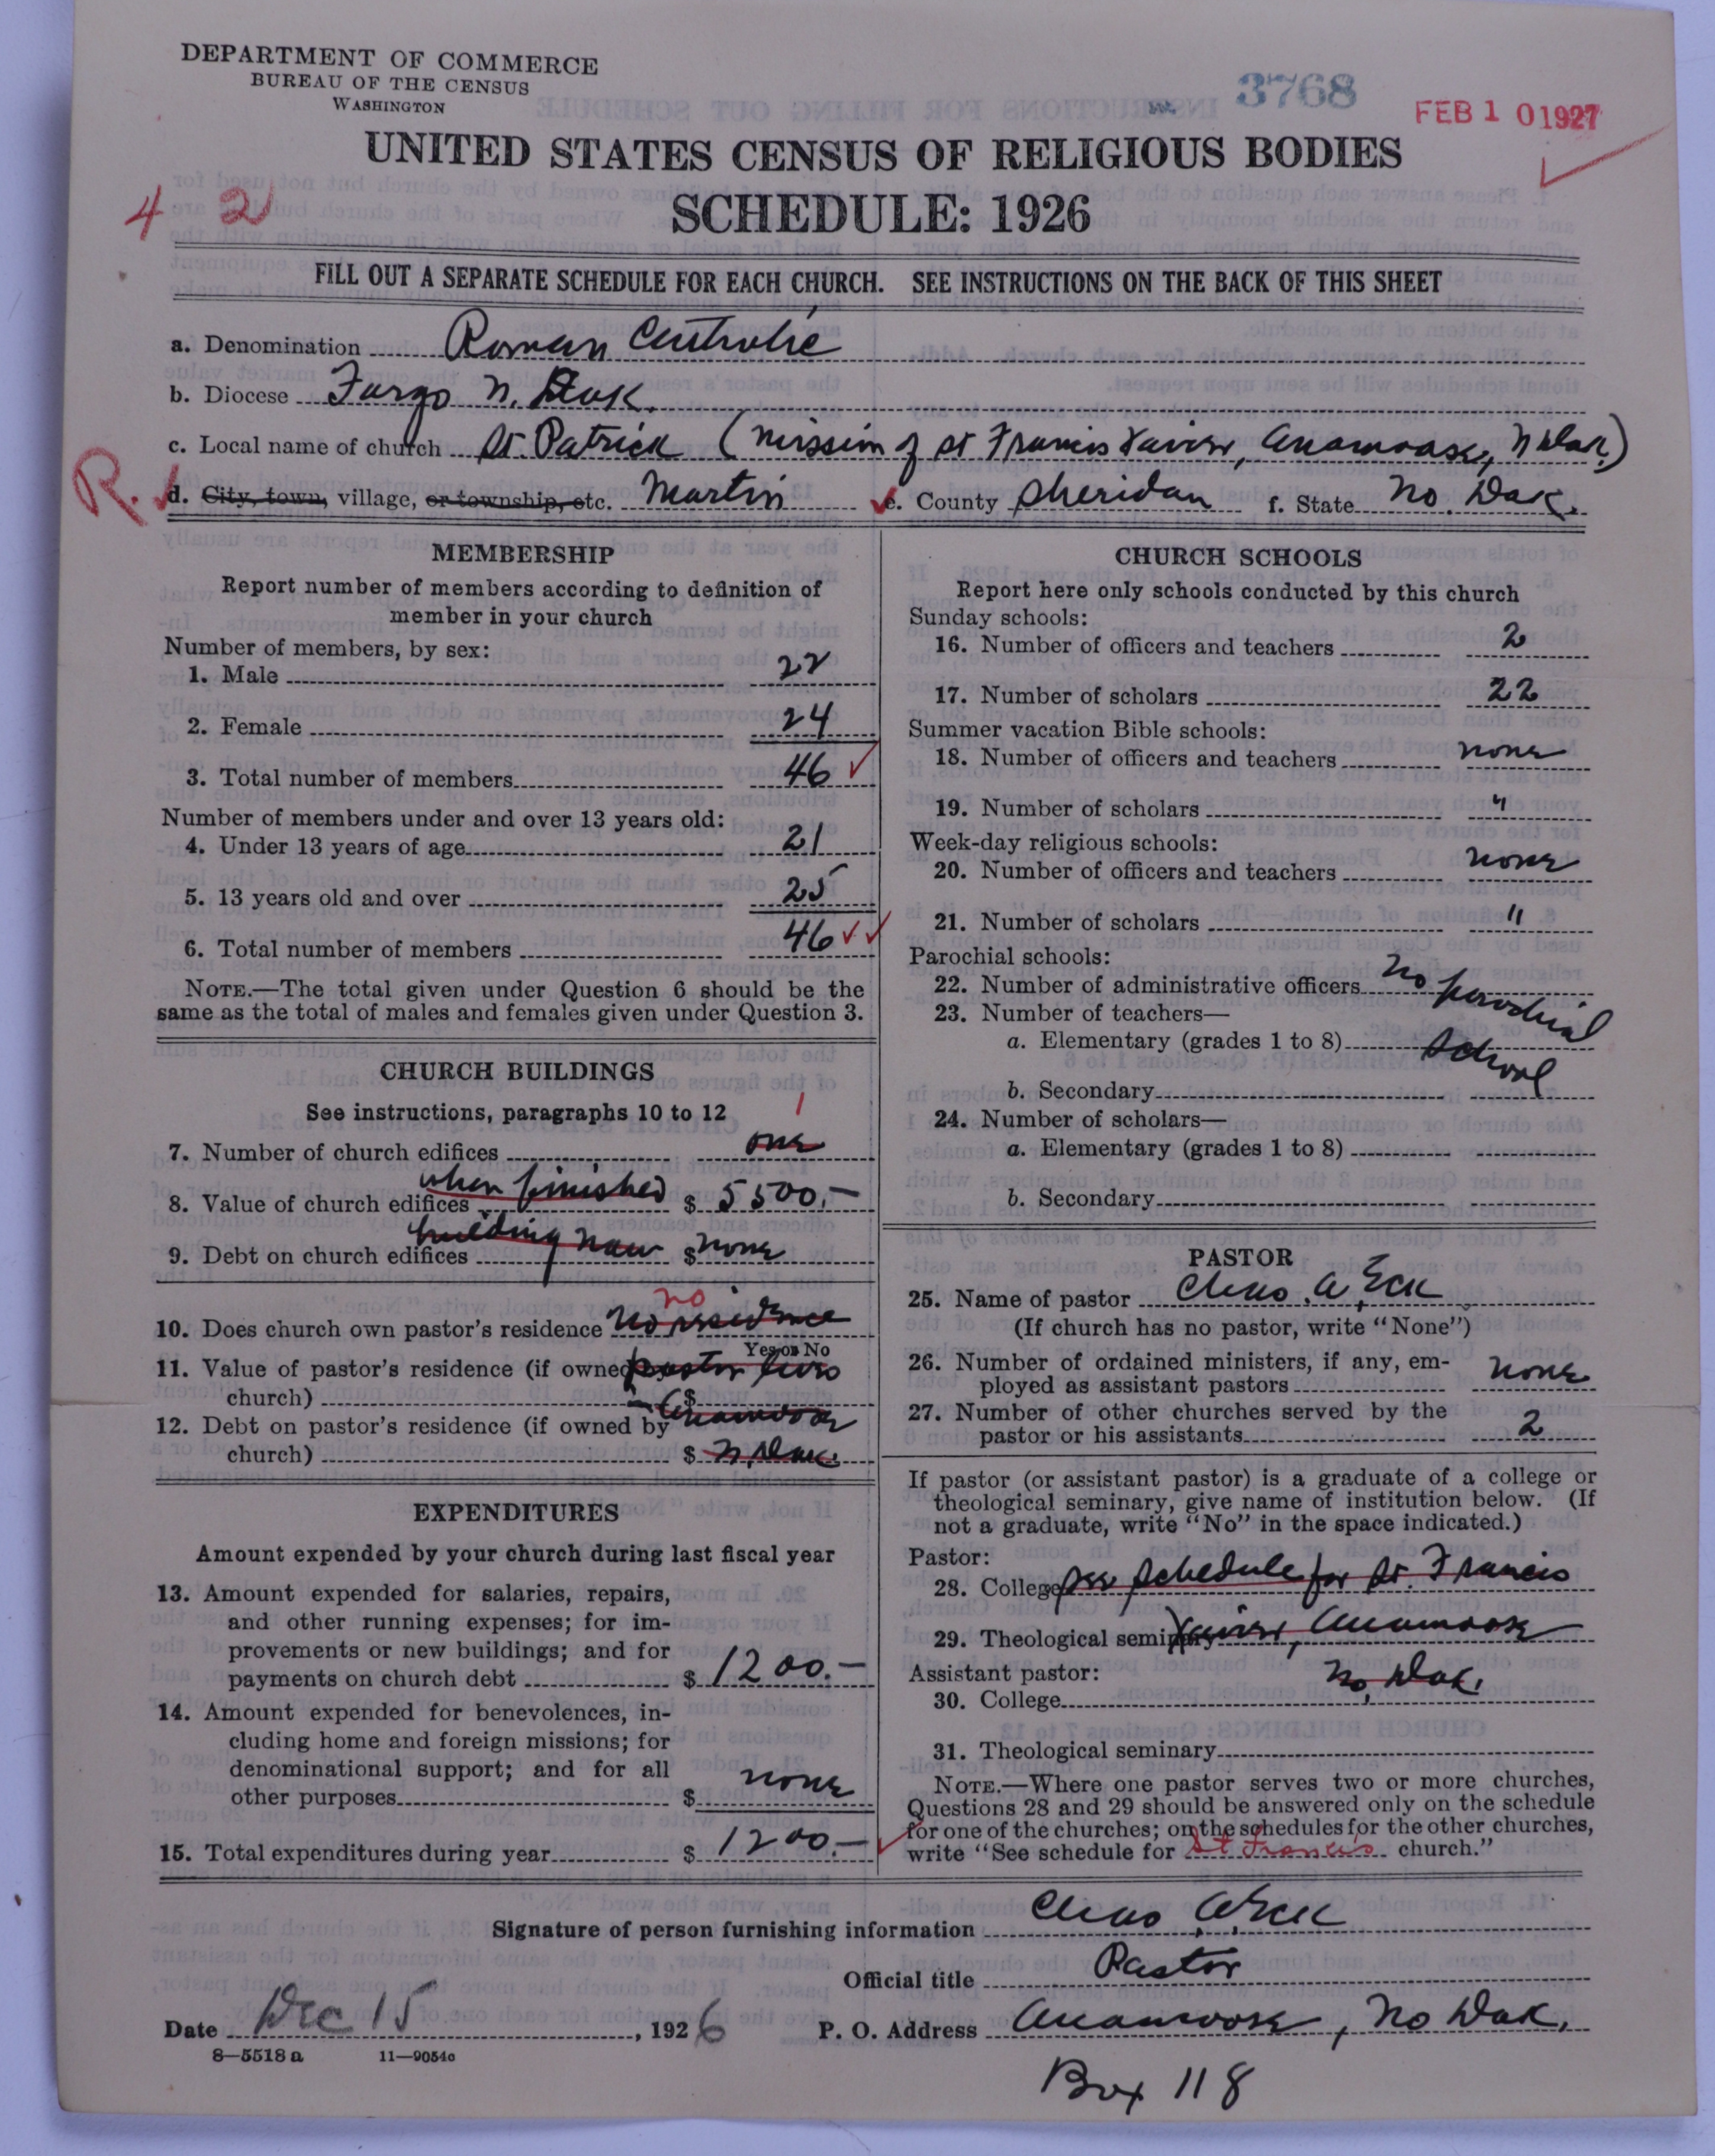 DEPARTMENT OF COMMERCE
BUREAU OF THE CENSUS
WASHINGTON
3768
FEB 10 1927
UNITED STATES CENSUS OF RELIGIOUS BODIES
4 2
SCHEDULE: 1926
FILL OUT A SEPARATE SCHEDULE FOR EACH CHURCH. SEE INSTRUCTIONS ON THE BACK OF THIS SHEET
a. Denomination Roman Catholic
b. Diocese Fargo N. Dak.
c. Local name of church St. Patrick (mission of St Francis Xavier, Anamoose, N Dak.)
R.
d. City, town, village, or township, etc. Martin e. County Sheridan f. State No. Dak.
MEMBERSHIP
Report number of members according to definition of
member in your church
Number of members, by sex:
1. Male 22
2. Female 24
3. Total number of members 46
Number of members under and over 13 years old:
4. Under 13 years of age 21
5. 13 years old and over 25
6. Total number of members 46
NOTE.—The total given under Question 6 should be the
same as the total of males and females given under Question 3.
CHURCH BUILDINGS
See instructions, paragraphs 10 to 12
1
7. Number of church edifices one
when finished
8. Value of church edifices $ 5500.—
building now
9. Debt on church edifices $ none
no
10. Does church own pastor's residence no residence
Yes or No
11. Value of pastor's residence (if owned pastor lives
church) in $
12. Debt on pastor's residence (if owned by Anamoose
church) $ N. Dak.
EXPENDITURES
Amount expended by your church during last fiscal year
13. Amount expended for salaries, repairs,
and other running expenses; for im-
provements or new buildings; and for
payments on church debt $ 1200.—
14. Amount expended for benevolences, in-
cluding home and foreign missions; for
denominational support; and for all
other purposes $ none
15. Total expenditures during year $ 1200.—
CHURCH SCHOOLS
Report here only schools conducted by this church
Sunday schools:
16. Number of officers and teachers 2
17. Number of scholars 22
Summer vacation Bible schools:
18. Number of officers and teachers none
19. Number of scholars "
Week-day religious schools:
20. Number of officers and teachers none
21. Number of scholars "
Parochial schools:
22. Number of administrative officers no parochial
23. Number of teachers—
a. Elementary (grades 1 to 8) school
b. Secondary
24. Number of scholars—
a. Elementary (grades 1 to 8)
b. Secondary
PASTOR
25. Name of pastor Chas. A. Eck
(If church has no pastor, write "None")
26. Number of ordained ministers, if any, em-
ployed as assistant pastors none
27. Number of other churches served by the
pastor or his assistants 2
If pastor (or assistant pastor) is a graduate of a college or
theological seminary, give name of institution below. (If
not a graduate, write "No" in the space indicated.)
Pastor:
28. College see schedule for St. Francis
29. Theological seminary Xavier, Anamoose
Assistant pastor: No. Dak.
30. College
31. Theological seminary
NOTE.—Where one pastor serves two or more churches,
Questions 28 and 29 should be answered only on the schedule
for one of the churches; on the schedules for the other churches,
write "See schedule for St Francis church."
Signature of person furnishing information Chas A. Eck
Official title Pastor
Date Dec 15, 1926 P. O. Address Anamoose, No Dak.
8—5518 a 11—9054c
Box 118